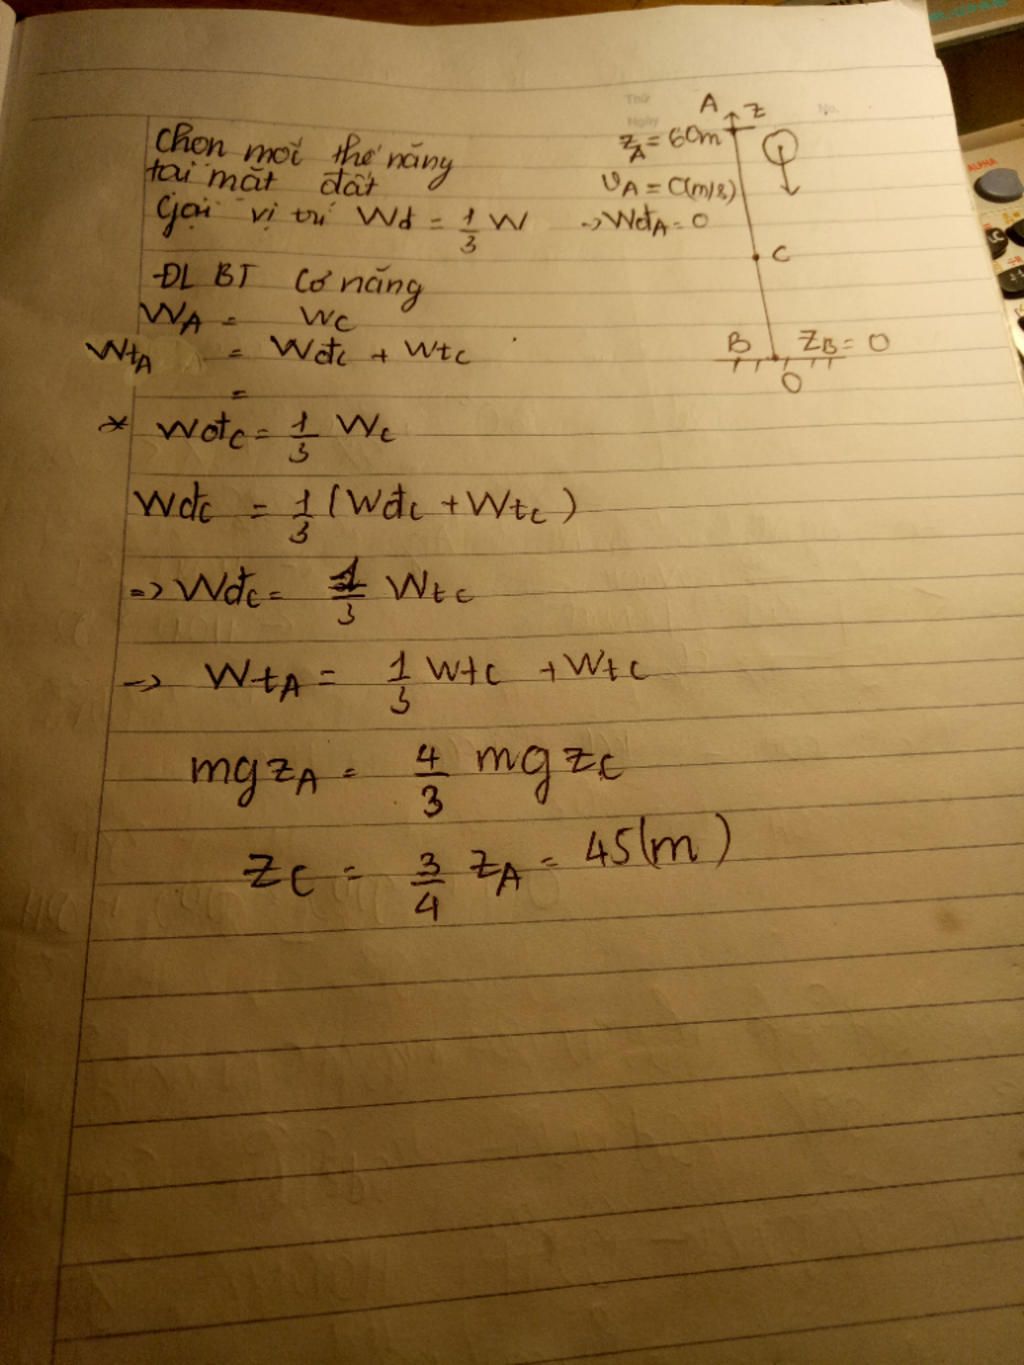 Thứ
Ngày
No.
Chọn mốc thế năng
tại mặt đất
Gọi vị trí Wđ = 1/3 W
ĐL BT Cơ năng
W_A = W_C
Wt_A = Wđ_C + Wt_C
=
* Wđ_C = 1/3 W_C
Wđ_C = 1/3 (Wđ_C + Wt_C)
=> Wđ_C = 1/3 Wt_C
-> Wt_A = 1/3 Wt_C + Wt_C
mgz_A = 4/3 mgz_C
z_C = 3/4 z_A = 45(m)
A z
z_A = 60m
v_A = 0(m/s)
-> Wđ_A = 0
C
B z_B = 0
O
ALPHA